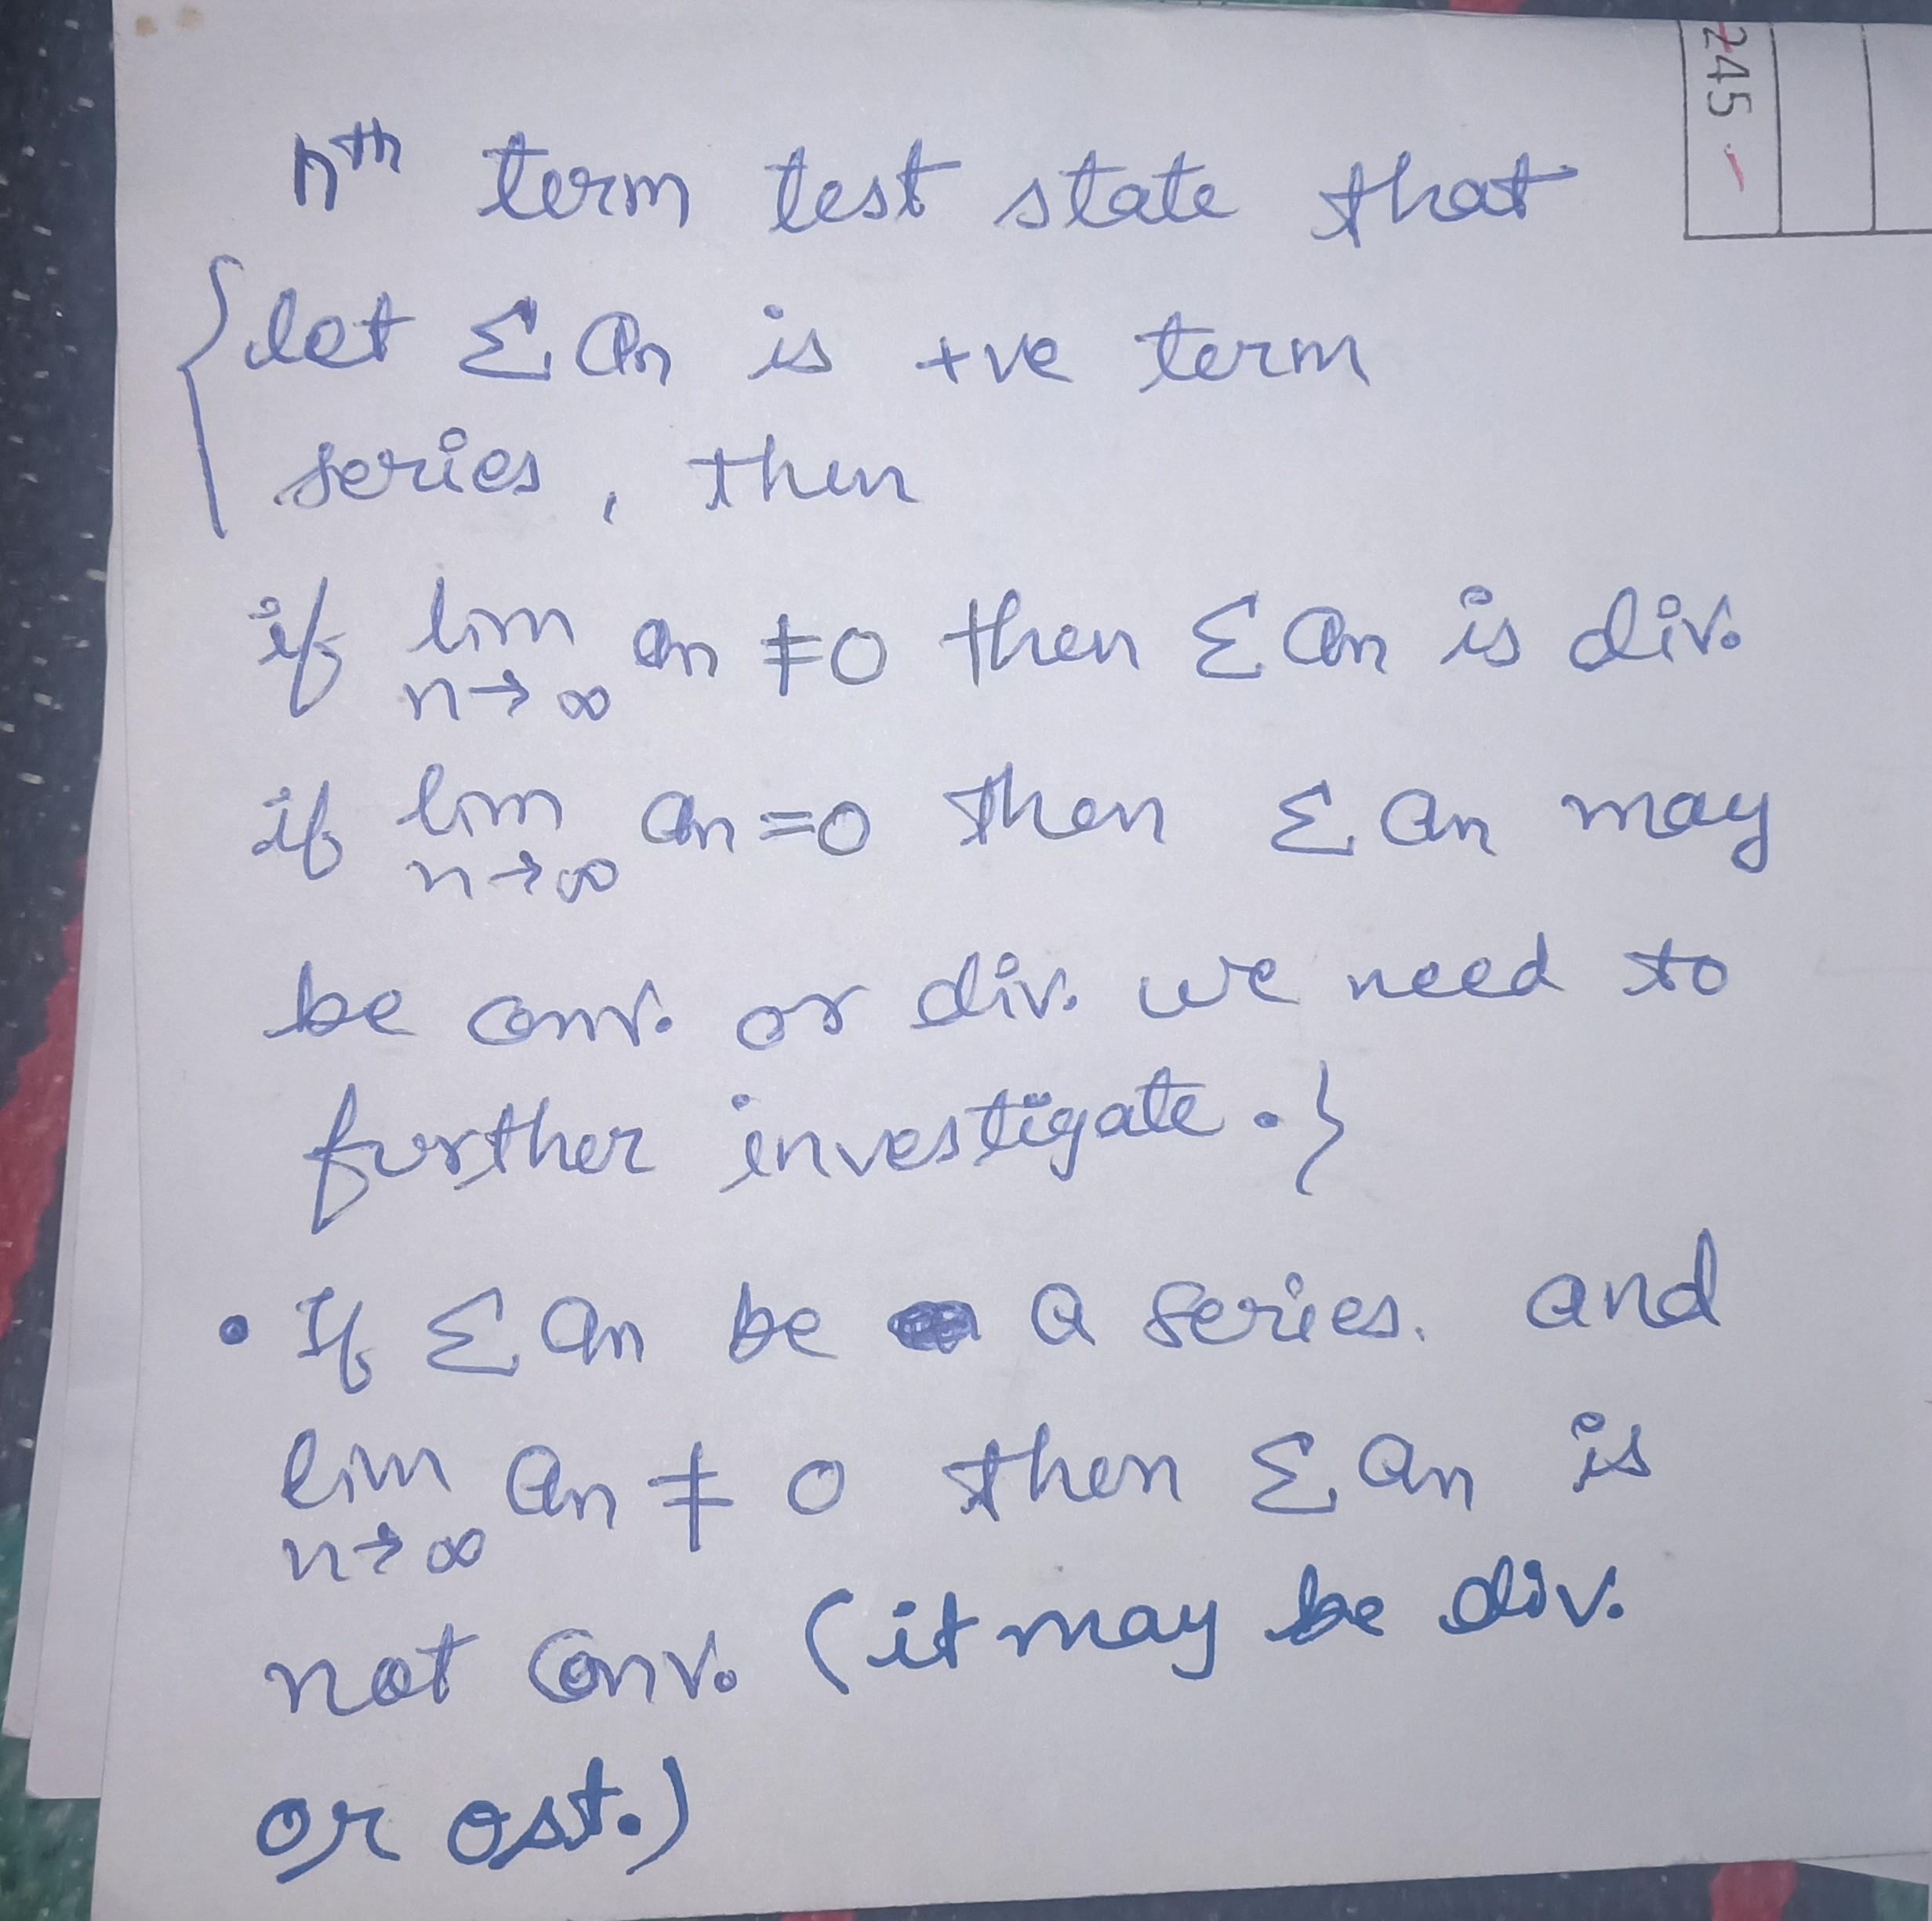 245
nth term test state that
{ let Σ an is +ve term
series, then
if lim an ≠0 then Σ an is div.
n→∞
if lim an=0 then Σ an may
n→∞
be conv. or div. we need to
further investigate.}
• If Σ an be a series. and
lim an ≠ 0 then Σ an is
n→∞
not conv. (it may be div.
or ost.)